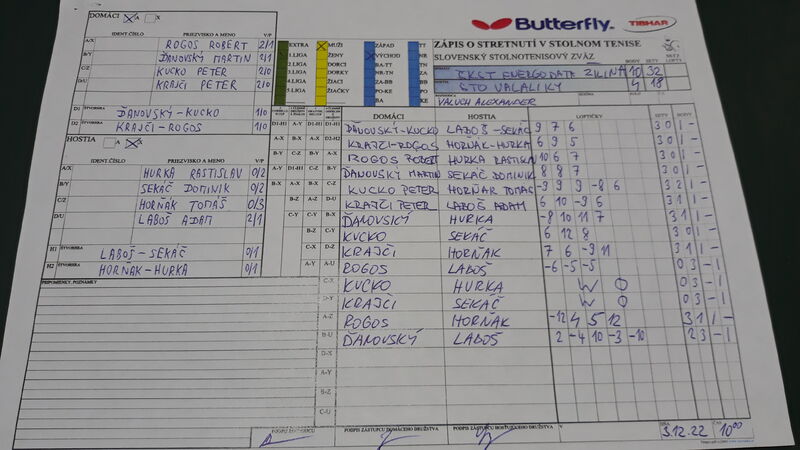 DOMÁCI A X
Butterfly TIBHAR
ZÁPIS O STRETNUTÍ V STOLNOM TENISE
SLOVENSKÝ STOLNOTENISOVÝ ZVÄZ
IDENT.ČÍSLO PRIEZVISKO A MENO V/P
A/X ROGOS RÓBERT 2/1
B/Y ĎANOVSKÝ MARTIN 2/1
C/Z KUCKO PETER 2/0
D/U KRAJČI PETER 2/0
D1 ĎANOVSKÝ-KUCKO 1/0
D2 KRAJČI-ROGOS 1/0
EXTRA MUŽI ZÁPAD TT
1.LIGA ŽENY VÝCHOD NR
2.LIGA DORCI BA-TT TN
3.LIGA DORKY NR-TN ZA
4.LIGA ŽIACI ZA-BB BB
5.LIGA ŽIAČKY PO-KE PO
BA KE
BODY SETY
ŠKST ENERGODATA ŽILINA 10 32
STO VALALIKY 4 18
VALUCH ALEXANDER
HOSTIA A X
IDENT.ČÍSLO PRIEZVISKO A MENO V/P
A/X HURKA RASTISLAV 0/2
B/Y SEKÁČ DOMINIK 0/2
C/Z HORŇÁK TOMÁŠ 0/3
D/U LABOŠ ADAM 2/1
H1 ŠTVORHRA LABOŠ-SEKÁČ 0/1
H2 ŠTVORHRA HORŇÁK-HURKA 0/1
DOMÁCI HOSTIA LOPTIČKY SETY BODY
ĎANOVSKÝ-KUCKO LABOŠ-SEKÁČ 9 7 6 3 0 1 -
KRAJČI-ROGOS HORŇÁK-HURKA 6 9 5 3 0 1 -
ROGOS RÓBERT HURKA RASTISLA 10 6 7 3 0 1 -
ĎANOVSKÝ MARTIN SEKÁČ DOMINIK 8 8 7 3 0 1 -
KUCKO PETER HORŇÁK TOMÁŠ -9 9 9 -8 6 3 2 1 -
KRAJČI PETER LABOŠ ADAM 6 10 -9 6 3 1 1 -
ĎANOVSKÝ HURKA -8 10 11 7 3 1 1 -
KUCKO SEKÁČ 6 12 8 3 0 1 -
KRAJČI HORŇÁK 7 6 -9 11 3 1 1 -
ROGOS LABOŠ -6 -5 -5 0 3 - 1
C-X KUCKO HURKA W O
D-Y KRAJČI SEKÁČ W O
A-Z ROGOS HORŇÁK -12 4 5 12 3 1 1 -
B-U ĎANOVSKÝ LABOŠ 2 -4 10 -3 -10 2 3 - 1
D-X
A-Y
B-Z
C-U
PRIPOMIENKY, POZNÁMKY
PODPIS ZÁSTUPCU DOMÁCEHO DRUŽSTVA PODPIS ZÁSTUPCU HOSŤUJÚCEHO DRUŽSTVA V DŇA 3.12.22 ČAS 10:00